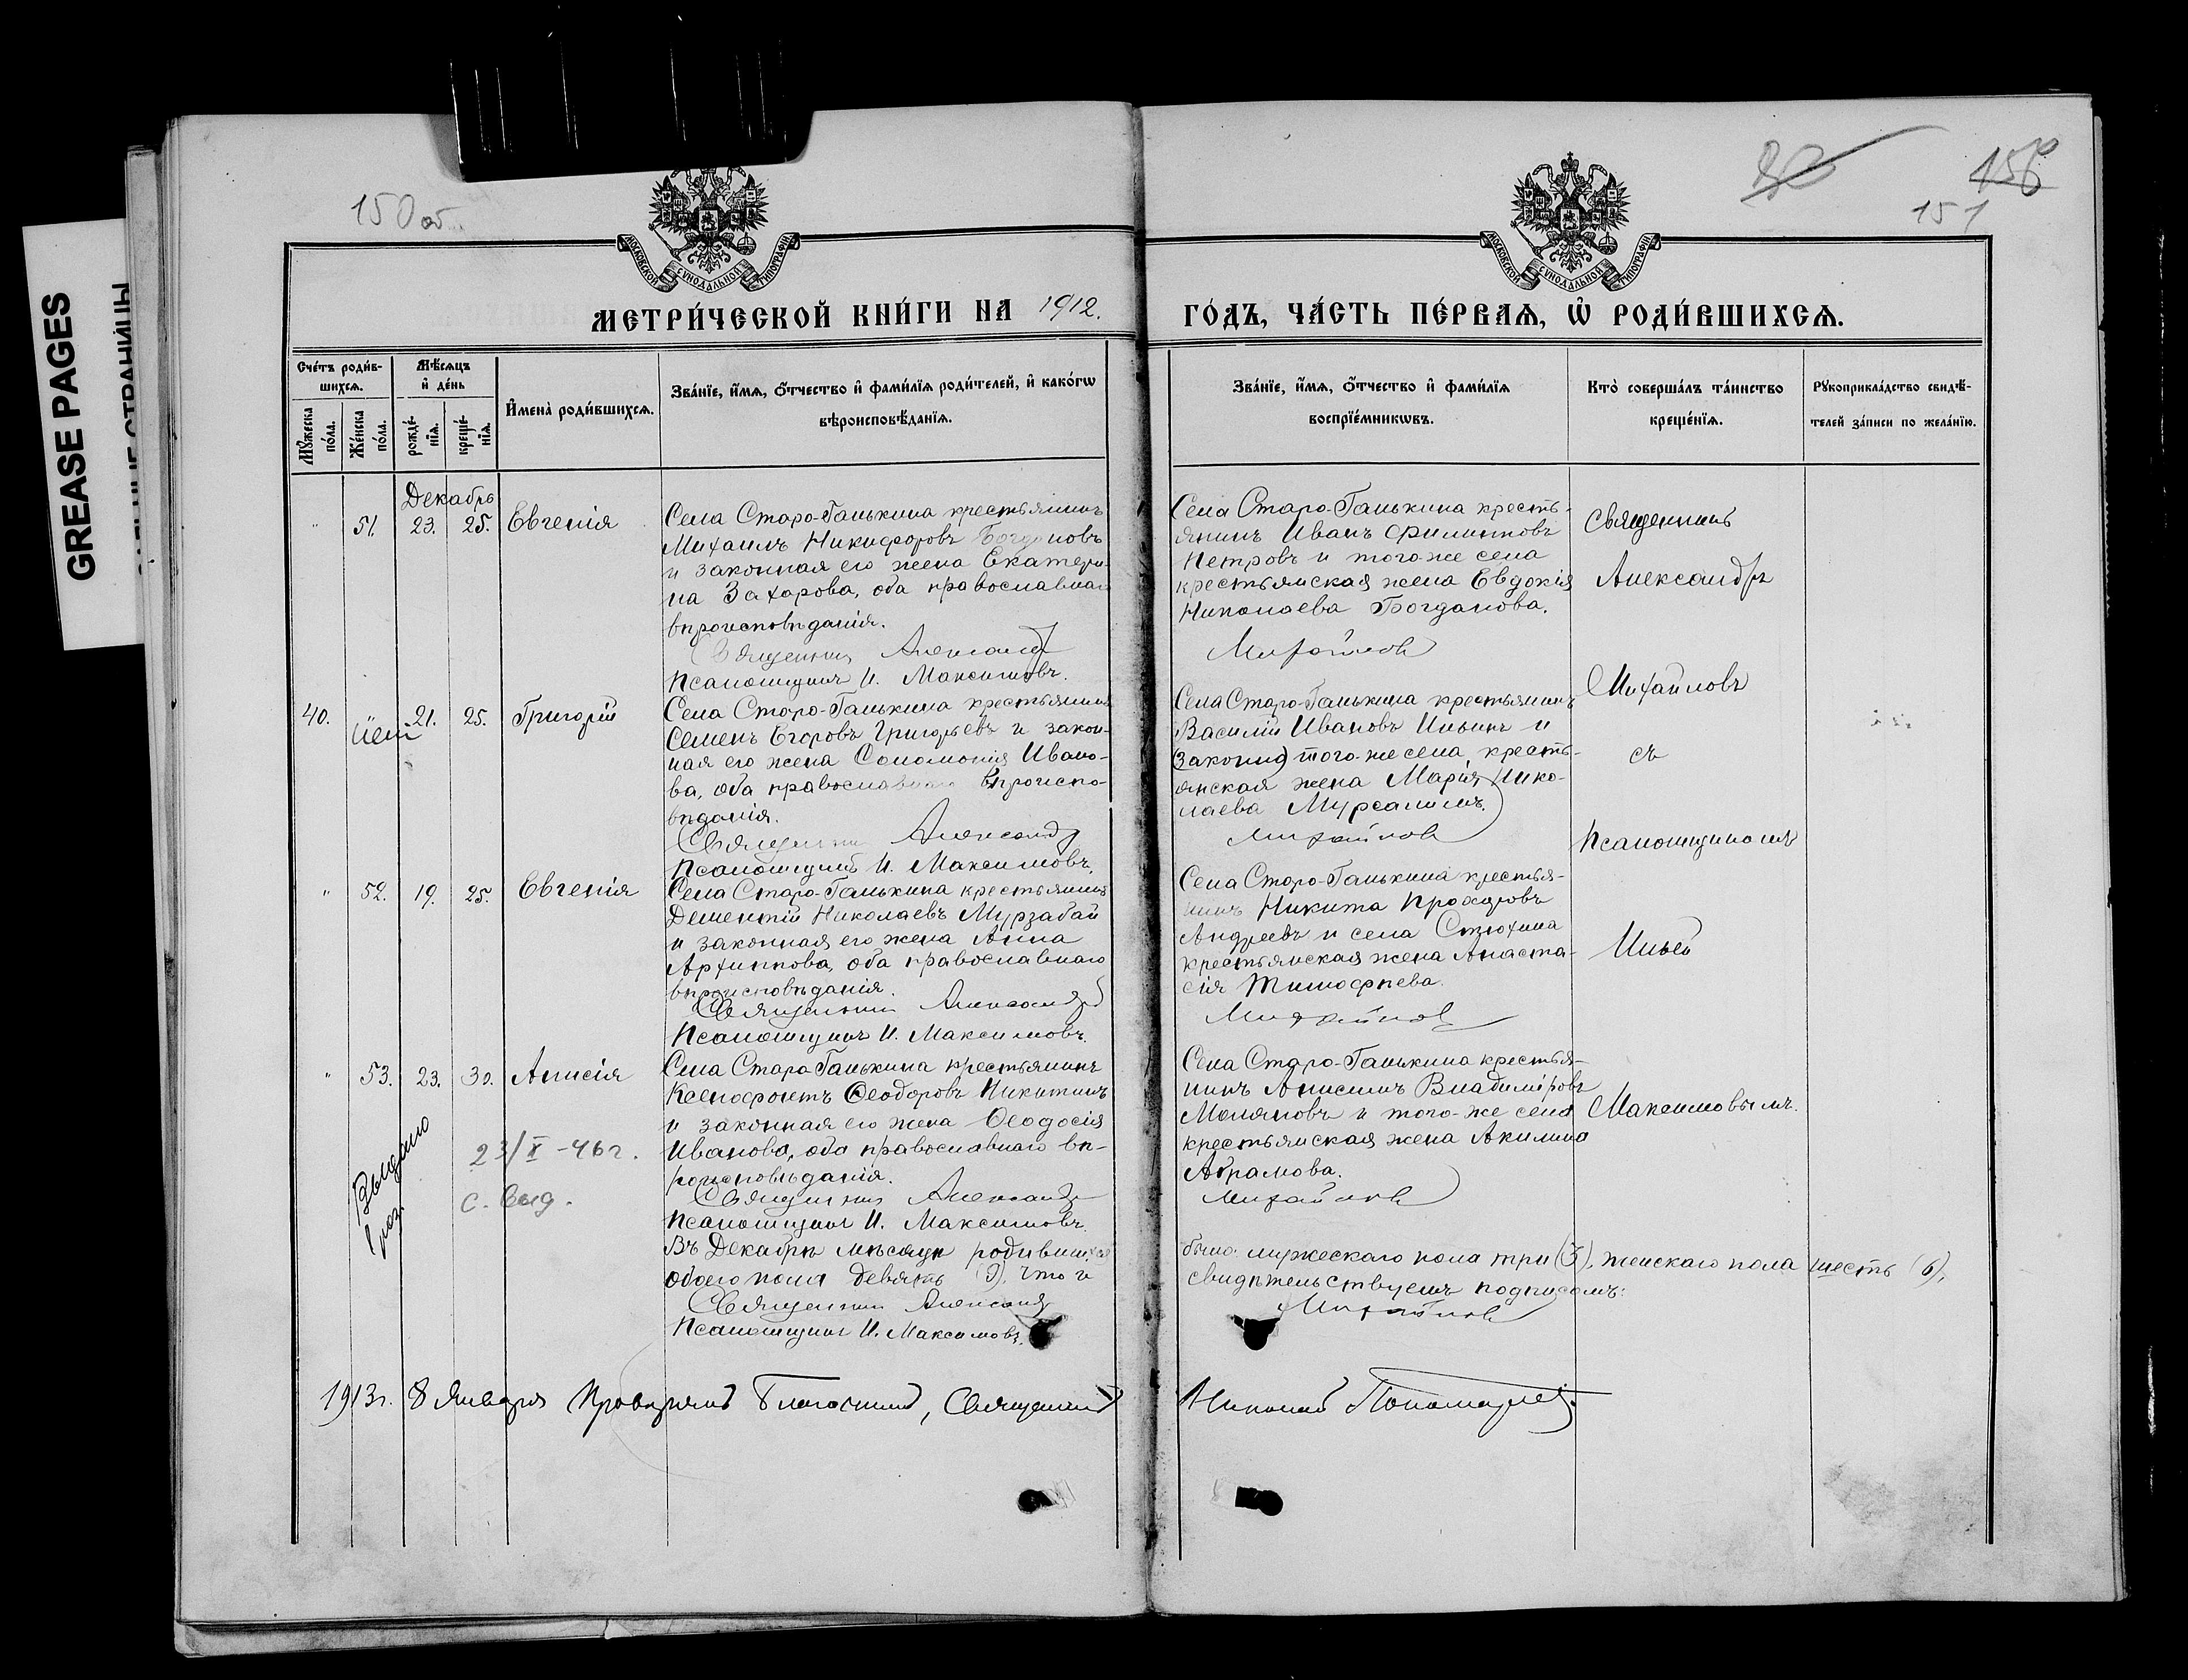 GREASE PAGES
150 об.
156
151
МОСКОВСКОЙ СѴНОДАЛЬНОЙ ТИПОГРАФІИ
МОСКОВСКОЙ СѴНОДАЛЬНОЙ ТИПОГРАФІИ
МЕТРИ́ЧЕСКОЙ КНИ́ГИ НА 1912.
ГО́ДЪ, ЧА́СТЬ ПЕ́РВАѦ, Ѡ҆ РОДИ́ВШИХСѦ.
Сче́тъ роди́в-
шихсѧ.
Мꙋжеска по́ла.
Же́нска по́ла.
Мѣ́сѧцъ
и҆ де́нь
рожде́-
нїѧ.
креще́-
нїѧ.
И҆мена̀ роди́вшихсѧ.
Зва́нїе, и҆́мѧ, ѻ҆́тчество и҆ фами́лїѧ роди́телей, и҆ како́гѡ
вѣроисповѣ́данїѧ.
Зва́нїе, и҆́мѧ, ѻ҆́тчество и҆ фами́лїѧ
воспрїе́мникѡвъ.
Кто̀ соверша́лъ та́инство
креще́нїѧ.
Рꙋкоприкла́дство свидѣ́-
телей за́писи по жела́нїю.
Декабрь
" 51. 23. 25. Евгенія
Села Старо-Ганькина крестьянинъ
Михаилъ Никифоровъ
и законная его жена Екатери-
на Захарова, оба православнаго
вѣроисповѣданія.
Священникъ Александр
Псаломщикъ И. Максимовъ.
Села Старо-Ганькина кресть-
янинъ Иванъ Филипповъ
Петровъ и того-же села
крестьянская жена Евдокія
Николаева Богданова.
Михайлов
Священникъ
Александръ
Михайловъ
съ
Псаломщикомъ
Ильей
Максимовымъ.
40. 21. 25. Григорій
Села Старо-Ганькина крестьянинъ
Семенъ Егоровъ Григорьевъ и закон-
ная его жена Соломонія Ивано-
ва, оба православнаго вѣроиспо-
вѣданія.
Священник Александр
Псаломщикъ И. Максимовъ.
Села Старо-Ганькина крестьянинъ
Василій Ивановъ Ильинъ и
(законно) того-же села, кресть-
янская жена Марія Нико-
лаева
Михайлов
" 52. 19. 25. Евгенія
Села Старо-Ганькина крестьянинъ
Дементій Николаевъ Мурзабай
и законная его жена Анна
Архиппова, оба православнаго
вѣроисповѣданія.
Священник Александр
Псаломщикъ И. Максимовъ.
Села Старо-Ганькина крестья-
нинъ Никита Прохоровъ
Андреевъ и села Стюхина
крестьянская жена Анаста-
сія Тимофѣева.
Михайлов
" 53. 23. 30. Анисія
Села Старо Ганькина крестьянинъ
Ксенофонтъ Ѳеодоровъ Никитинъ
и законная его жена Ѳеодосія
Иванова, оба православнаго вѣ-
роисповѣданія.
Священник Александр
Псаломщикъ И. Максимовъ.
Села Старо-Ганькина крестья-
нинъ Анисимъ Владиміровъ
Моляновъ и того-же села
крестьянская жена Акилина
Абрамова.
Михайлов
Выдано
23/X - 46 г.
с. выд.
Въ Декабрѣ мѣсяцѣ родившихся
обоего пола девять (9), что и
было: мужескаго пола три (3), женскаго пола шесть (6),
свидѣтельствуемъ подписомъ:
Священник Александр
Михайлов
Псаломщикъ И. Максимовъ.
1913 г. 8 Января Провѣрялъ Благочинный, Священникъ Николай Пономарев.